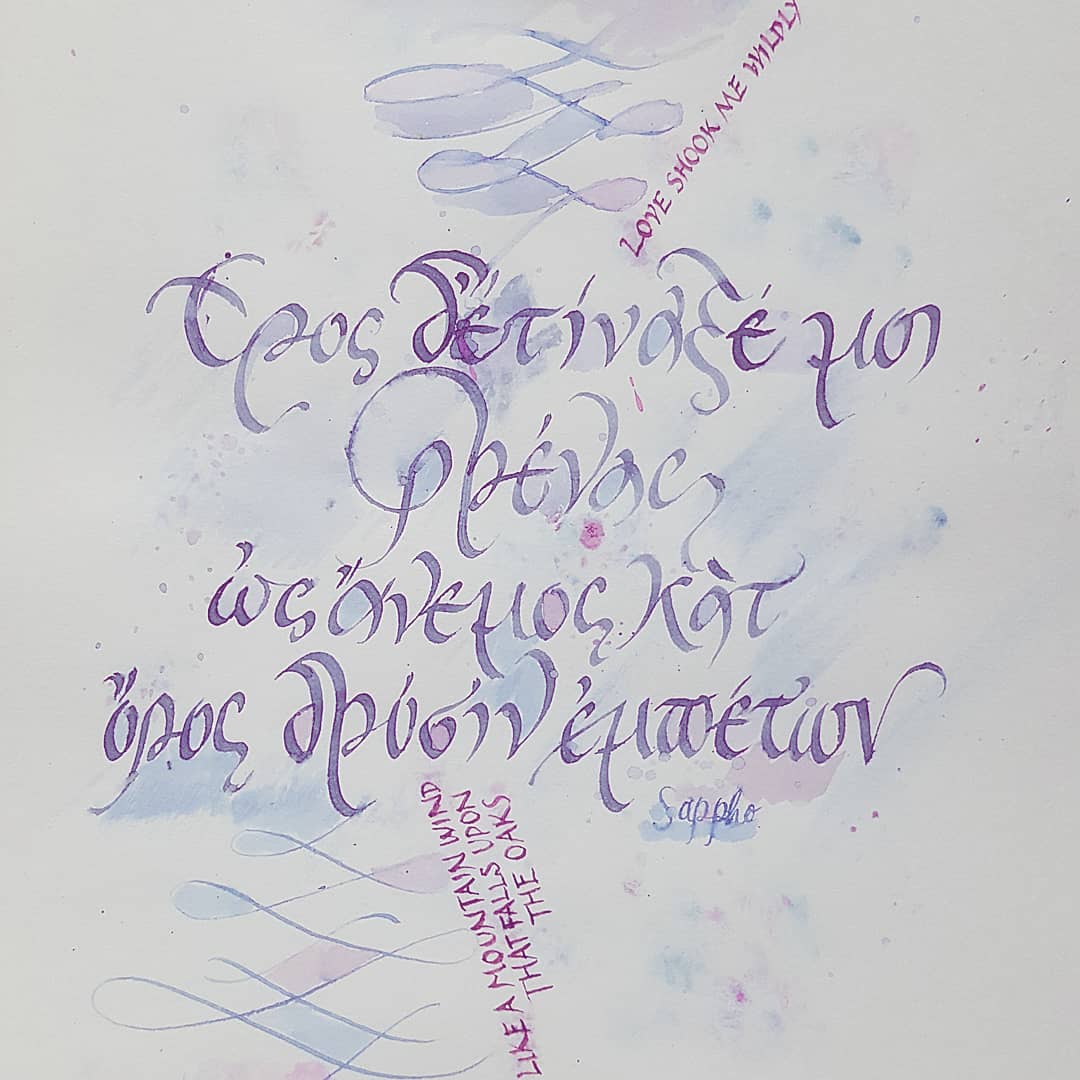 LOVE SHOOK ME WILDLY
Ερος δ' ἐτίναξέ μοι
φρένας,
ὠς ἄνεμος κὰτ
ὄρος δρύσιν ἐμπέτων
Sappho
LIKE A MOUNTAIN WIND
THAT FALLS UPON
THE OAKS